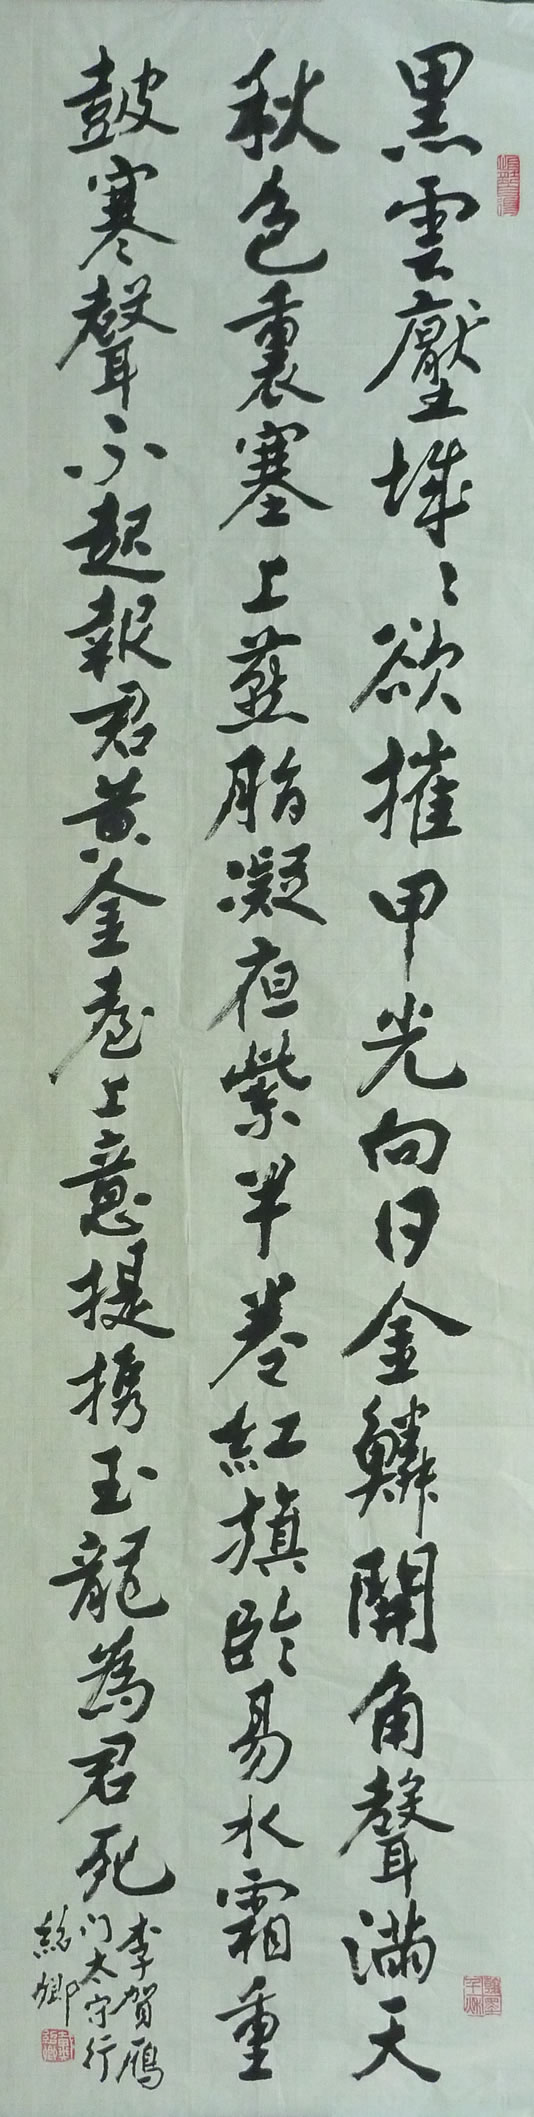 黑雲壓城〻欲摧甲光向日金鱗開角聲滿天
秋色裏塞上燕脂凝夜紫半卷紅旗臨易水霜重
鼓寒聲不起報君黃金臺上意提攜玉龍為君死
李賀雁
门太守行